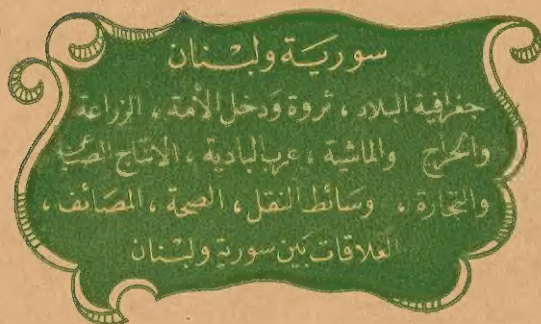 سورية ولبنان
جغرافية البلاد ، ثروة ودخل الأمة ، الزراعة
والحراج والماشية ، عرب البادية ، الانتاج الصناعي
والتجارة ، وسائط النقل ، الصحة ، المصائف ،
العلاقات بين سورية ولبنان